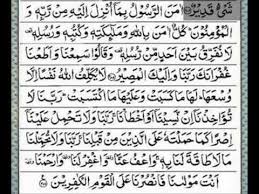 شَىْءٍ قَدِيْرٌ اٰمَنَ الرَّسُوْلُ بِمَاۤ اُنْزِلَ اِلَيْهِ مِنْ رَّبِّهٖ وَ
الْمُؤْمِنُوْنَ كُلٌّ اٰمَنَ بِاللّٰهِ وَمَلٰٓئِكَتِهٖ وَكُتُبِهٖ وَرُسُلِهٖ
لَا نُفَرِّقُ بَيْنَ اَحَدٍ مِّنْ رُّسُلِهٖ وَقَالُوْا سَمِعْنَا وَاَطَعْنَا
غُفْرَانَكَ رَبَّنَا وَاِلَيْكَ الْمَصِيْرُ لَا يُكَلِّفُ اللّٰهُ نَفْسًا اِلَّا
وُسْعَهَا لَهَا مَا كَسَبَتْ وَعَلَيْهَا مَا اكْتَسَبَتْ رَبَّنَا
لَا تُؤَاخِذْنَاۤ اِنْ نَّسِيْنَاۤ اَوْ اَخْطَاْنَا رَبَّنَا وَلَا تَحْمِلْ عَلَيْنَاۤ
اِصْرًا كَمَا حَمَلْتَهٗ عَلَى الَّذِيْنَ مِنْ قَبْلِنَا رَبَّنَا وَلَا تُحَمِّلْنَا
مَا لَا طَاقَةَ لَنَا بِهٖ وَاعْفُ عَنَّا وَاغْفِرْ لَنَا وَارْحَمْنَا
اَنْتَ مَوْلٰىنَا فَانْصُرْنَا عَلَى الْقَوْمِ الْكٰفِرِيْنَ